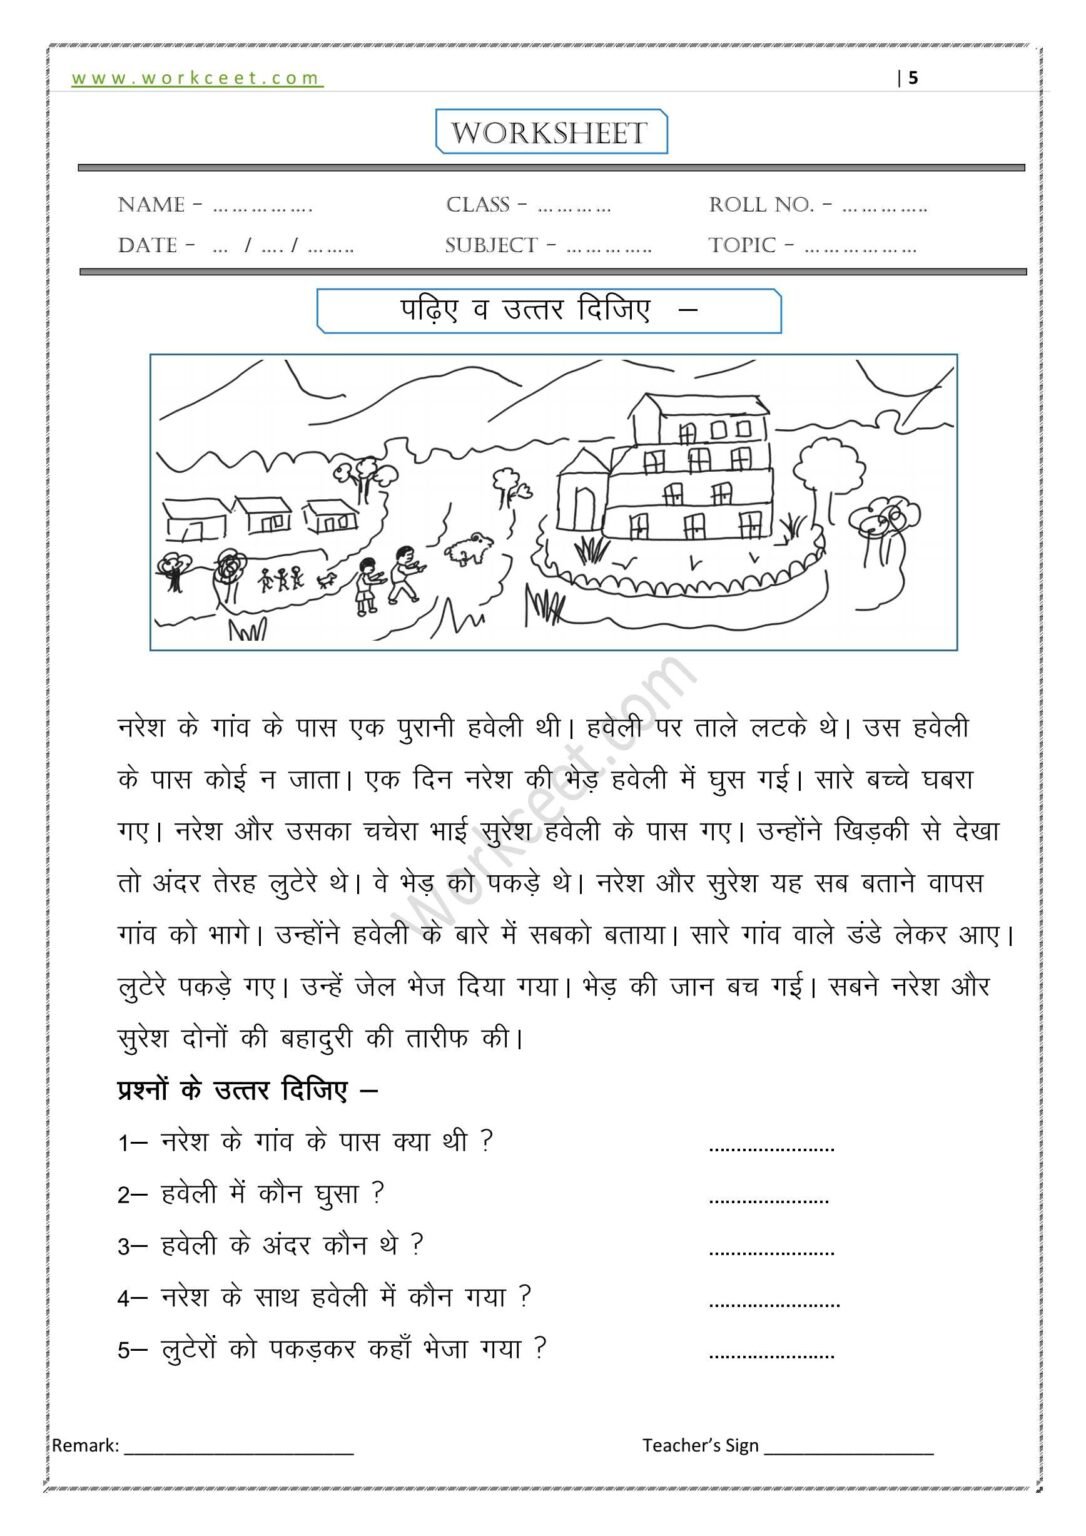 www.workceet.com | 5
WORKSHEET
NAME – …………… CLASS – ………… ROLL NO. – …………..
DATE – … / …. / …….. SUBJECT – ………….. TOPIC – ………………
पढ़िए व उत्तर दिजिए –
नरेश के गांव के पास एक पुरानी हवेली थी। हवेली पर ताले लटके थे। उस हवेली
के पास कोई न जाता। एक दिन नरेश की भेड़ हवेली में घुस गई। सारे बच्चे घबरा
गए। नरेश और उसका चचेरा भाई सुरेश हवेली के पास गए। उन्होंने खिड़की से देखा
तो अंदर तेरह लुटेरे थे। वे भेड़ को पकड़े थे। नरेश और सुरेश यह सब बताने वापस
गांव को भागे। उन्होंने हवेली के बारे में सबको बताया। सारे गांव वाले डंडे लेकर आए।
लुटेरे पकड़े गए। उन्हें जेल भेज दिया गया। भेड़ की जान बच गई। सबने नरेश और
सुरेश दोनों की बहादुरी की तारीफ की।
Workceet.com
प्रश्नों के उत्तर दिजिए –
1– नरेश के गांव के पास क्या थी ? .......................
2– हवेली में कौन घुसा ? ......................
3– हवेली के अंदर कौन थे ? .......................
4– नरेश के साथ हवेली में कौन गया ? ........................
5– लुटेरों को पकड़कर कहाँ भेजा गया ? .......................
Remark: _______________________ Teacher's Sign _________________